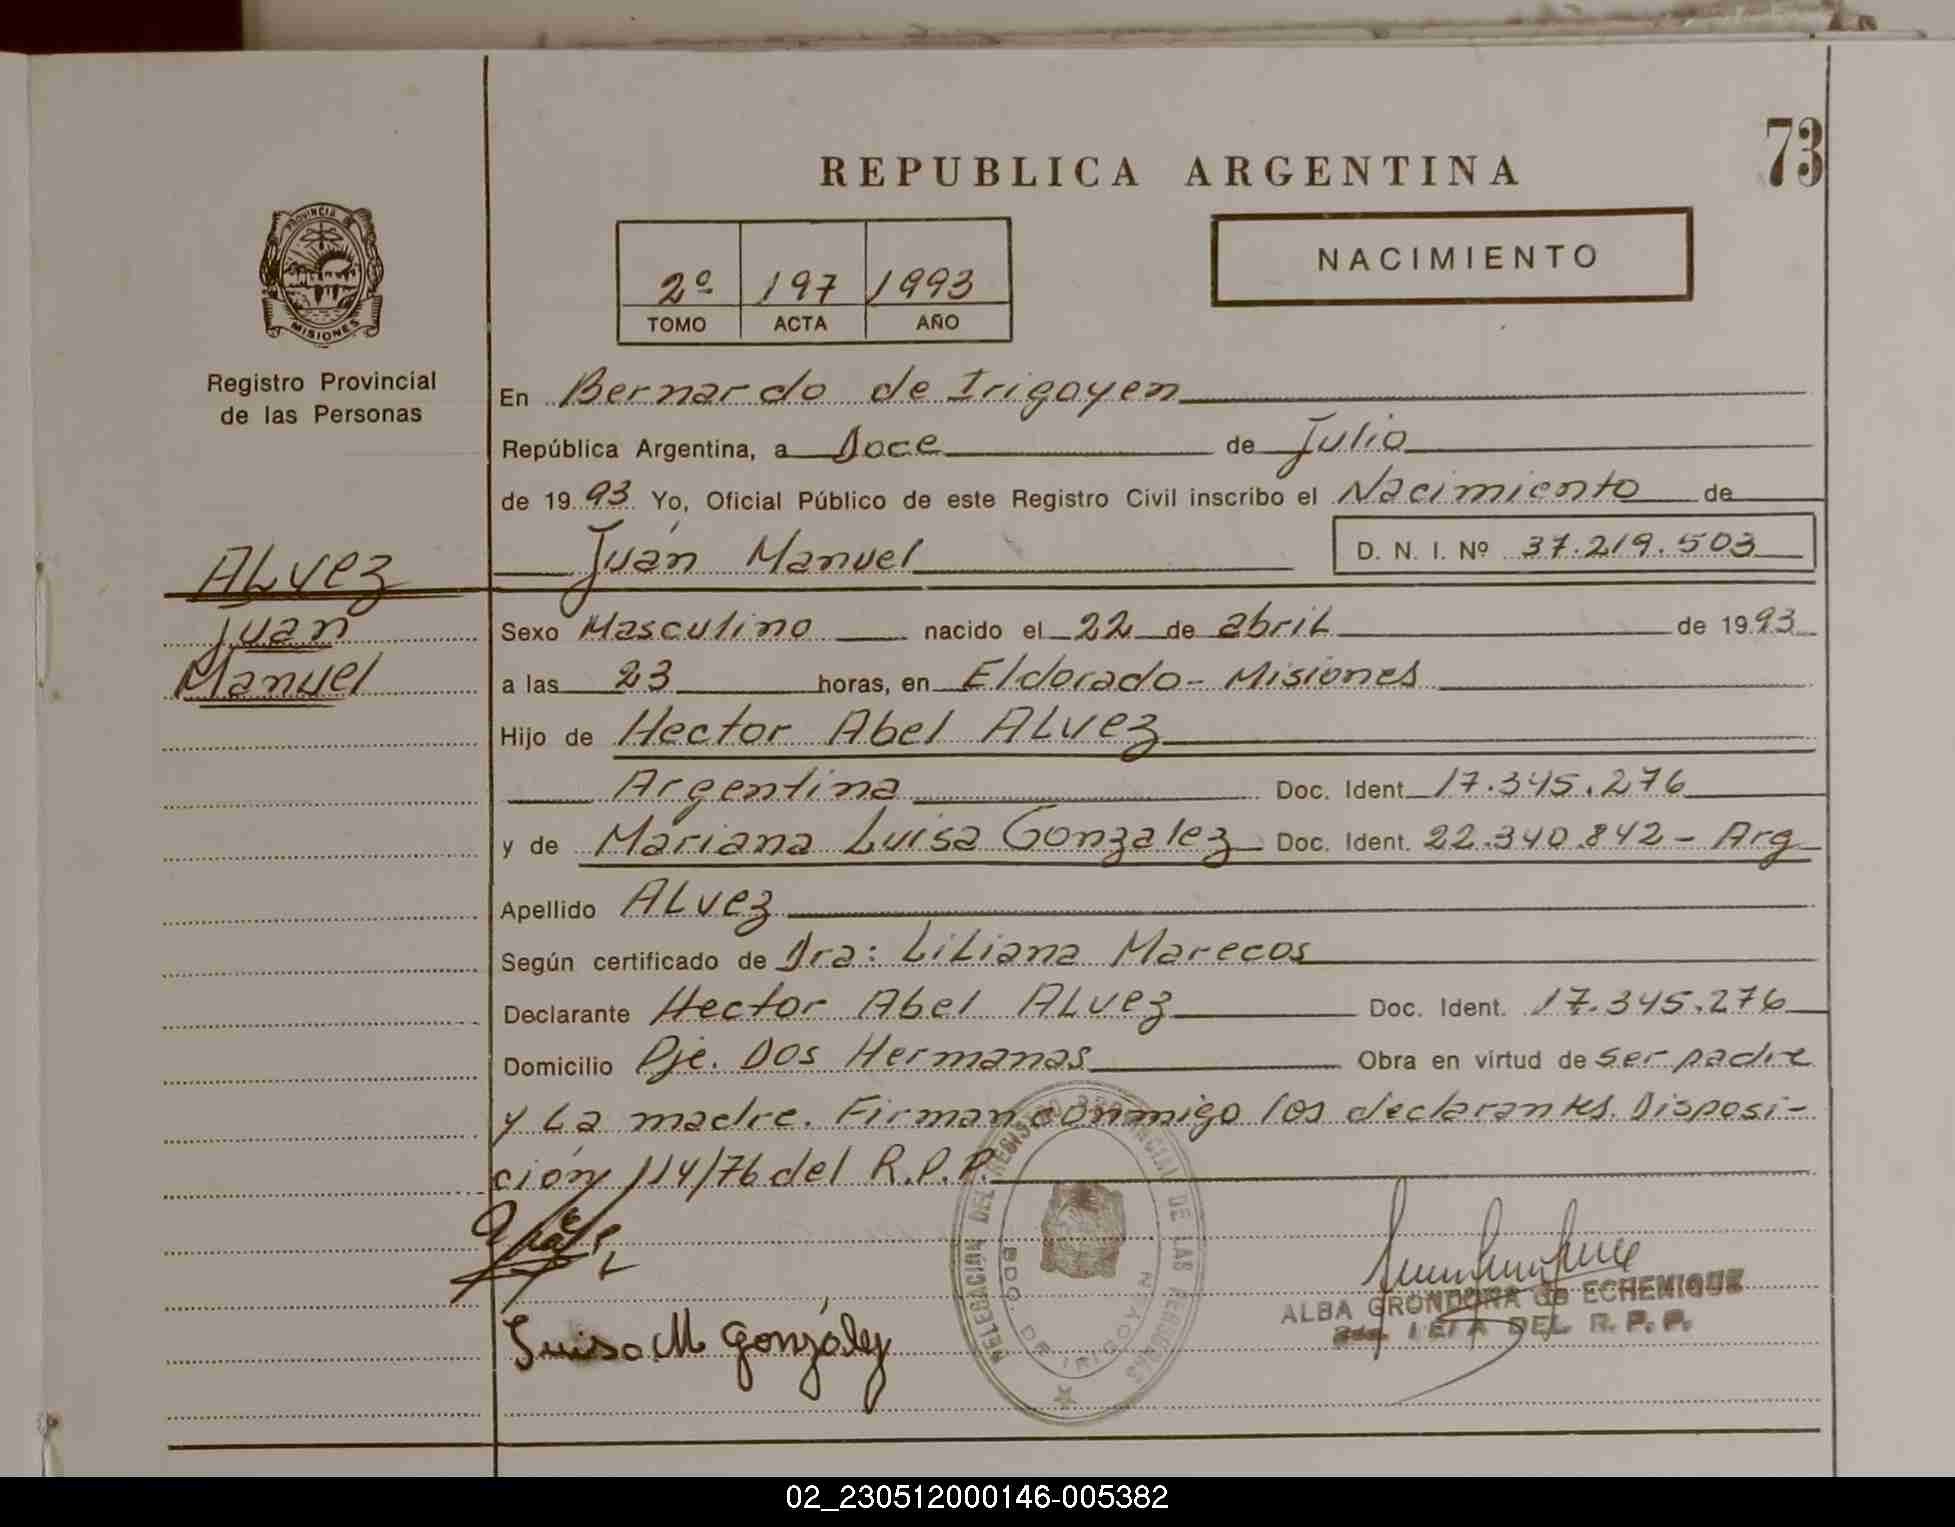 73
REPUBLICA ARGENTINA
PROVINCIA DE
MISIONES
Registro Provincial
de las Personas
2º 197 1993
TOMO ACTA AÑO
NACIMIENTO
En Bernardo de Irigoyen
República Argentina, a Doce de Julio
de 1993 Yo, Oficial Público de este Registro Civil inscribo el Nacimiento de
ALvez
Juan
Manuel
Juan Manuel D. N. I. Nº 37.219.503
Sexo Masculino nacido el 22 de abril de 1993
a las 23 horas, en Eldorado - Misiones
Hijo de Hector Abel ALvez
Argentina Doc. Ident. 17.345.276
y de Mariana Luisa Gonzalez Doc. Ident. 22.340.842 - Arg
Apellido ALvez
Según certificado de Dra: LiLiana Marecos
Declarante Hector Abel ALvez Doc. Ident. 17.345.276
Domicilio Pje. Dos Hermanas Obra en virtud de ser padre
y La madre. Firman conmigo los declarantes. Disposi-
ción 114/76 del R.P.P.
DELEGACIÓN DEL REGISTRO PROVINCIAL DE LAS PERSONAS
BDO. DE IRIGOYEN
Luisa M González
ALBA GRONDONA de ECHENIQUE
JEFA DEL R. P. P.
02_230512000146-005382